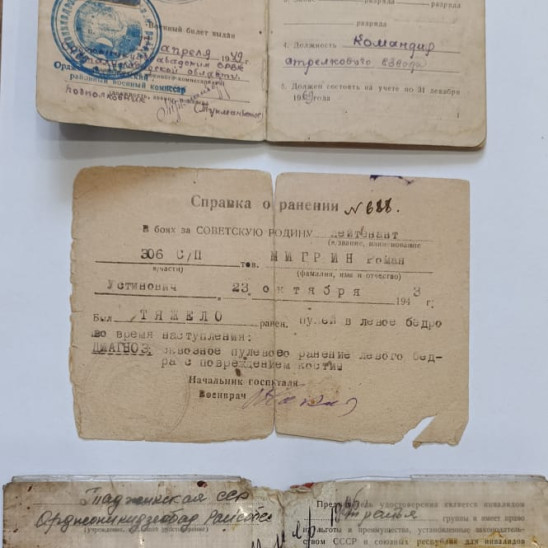 билет выдан
апреля 19
районный военный комиссар
подполковник
разряда
разряда
4. Должность Командир
стрелкового взвода
5. Должен состоять на учете по 31 декабря
года
1
Справка о ранении №688.
В боях за СОВЕТСКУЮ РОДИНУ лейтенант
(в/звание, наименование
306 С/П тов. МИГРИН Роман
в/части) (фамилия, имя и отчество)
Устинович 23 октября 1943 г.
Был ТЯЖЕЛО ранен. пулей в левое бедро
во время наступления:
ДИАГНОЗ сквозное пулевое ранение левого бед-
ра с повреждением кости
Начальник госпиталя
Военврач
Таджикская ССР
Орджоникидзеабад
удостоверения является инвалидом
группы и имеет право
льготы и преимущества, установленные законодатель-
ством СССР и союзных республик для инвалидов